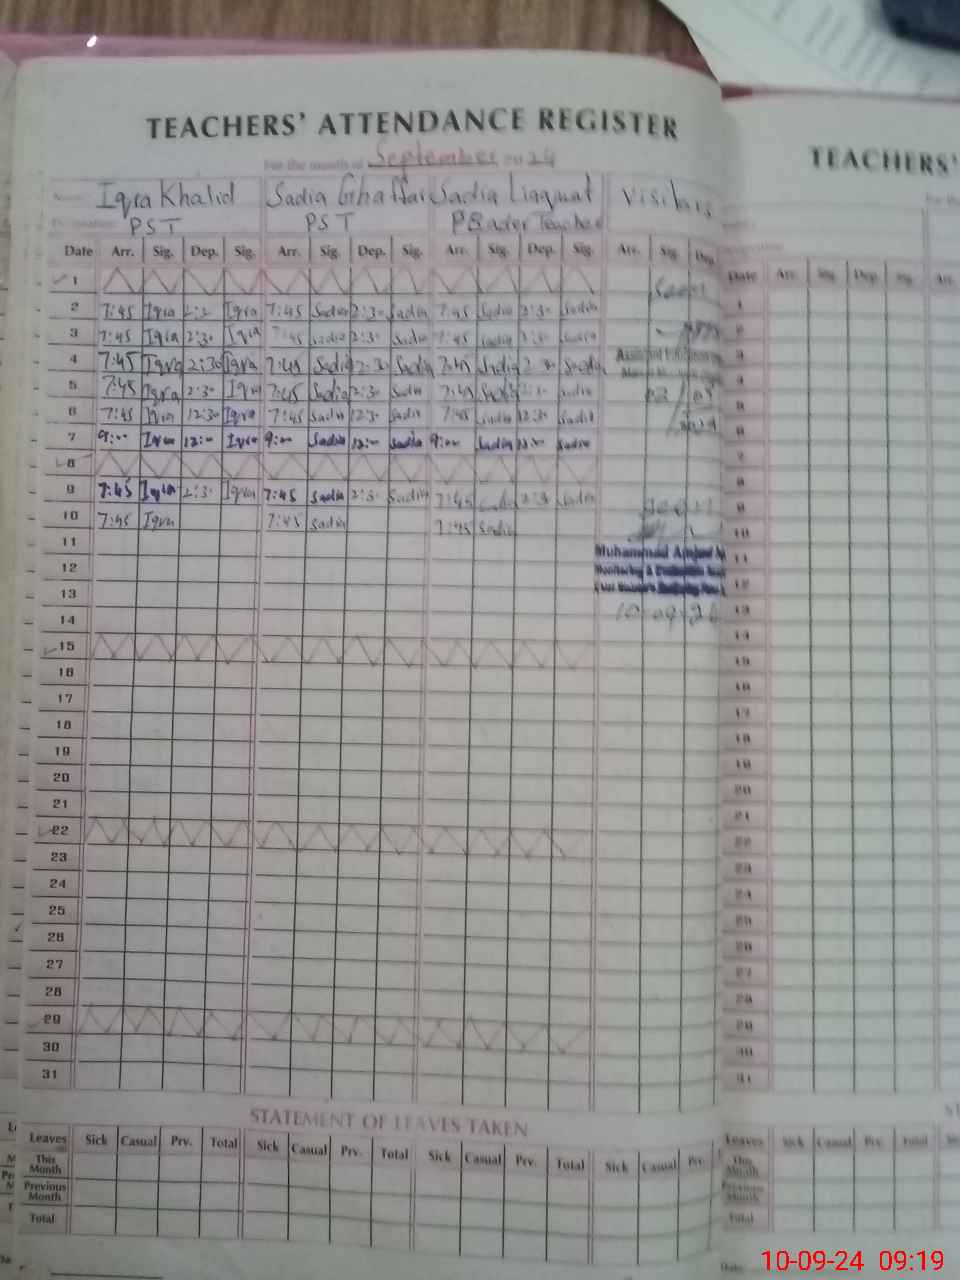 TEACHERS' ATTENDANCE REGISTER
For the month of September 2024
Name Iqra Khalid Sadia Ghaffar Sadia Liaqmat Visitors
Designation PST PST Teacher
Date Arr. Sig. Dep. Sig. Arr. Sig. Dep. Sig. Arr. Sig. Dep. Sig. Arr. Sig. Dep.
1
2 7:45 Iqra 2:3 Iqra 7:45 Sadia 2:3 Sadia 7:45 Sadia 2:3 Sadia
3 7:45 Iqra 2:30 Iqra 7:45 Sadia 2:30 Sadia 7:45 Sadia 2:30 Sadia
4 7:45 Iqra 2:30 Iqra 7:45 Sadia 2:30 Sadia 7:45 Sadia 2:30 Sadia
5 7:45 Iqra 2:30 Iqra 7:45 Sadia 2:30 Sadia 7:45 Sadia Sadia
6 7:45 Iqra 12:30 Iqra 7:45 Sadia 12:30 Sadia 7:45 Sadia 12:30 Sadia
7 9:00 Iqra 12:00 Iqra 9:00 Sadia 12:00 Sadia 9:00 Sadia 12:00 Sadia
8
9 7:45 Iqra 2:30 Iqra 7:45 Sadia 2:30 Sadia 7:45 Sadia 2:30 Sadia
10 7:45 Iqra 7:45 Sadia 7:45 Sadia
11 Muhammad Amjad
12 Monitoring & Evaluation
13 10-09-24
14
15
16
17
18
19
20
21
22
23
24
25
26
27
28
29
30
31
STATEMENT OF LEAVES TAKEN
Leaves Sick Casual Prv. Total Sick Casual Prv. Total Sick Casual Prv. Total Sick Casual Prv.
This Month
Previous Month
Total
TEACHERS'
Date Arr. Sig. Dep. Sig. Arr.
1
2
3
4
5
6
7
8
9
10
11
12
13
14
15
16
17
18
19
20
21
22
23
24
25
26
27
28
29
30
31
Leaves Sick Casual Prv. Total
This Month
Previous Month
Total
10-09-24 09:19